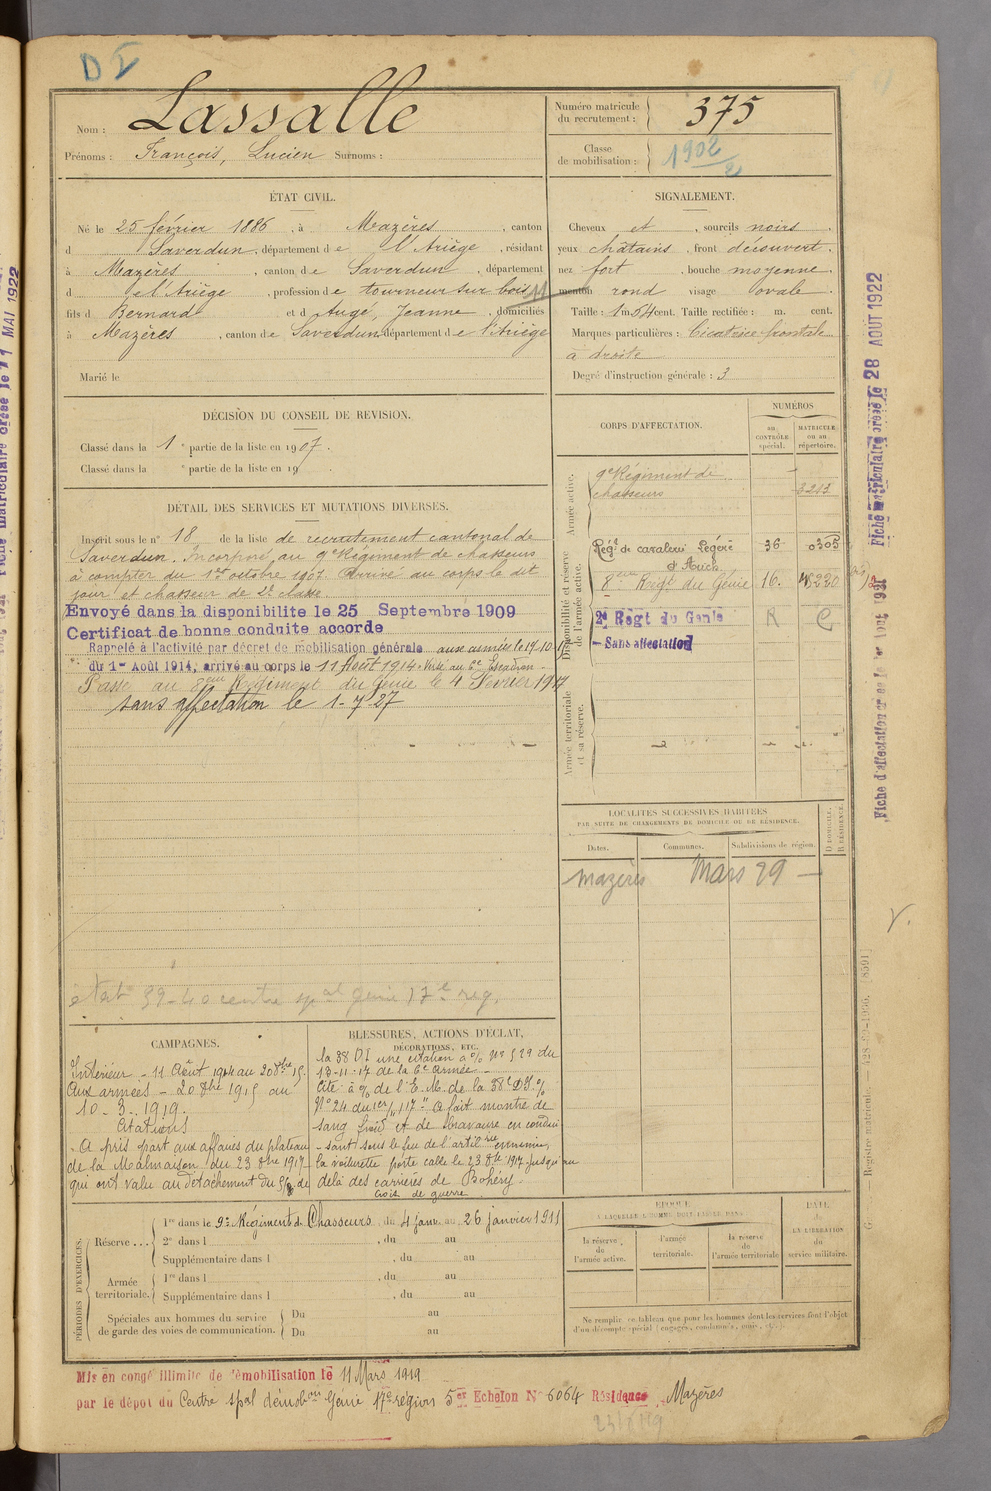 D I
Nom : Lassalle
Prénoms : François, Lucien Surnoms :
Numéro matricule du recrutement : 375
Classe de mobilisation : 1902/2
ÉTAT CIVIL.
Né le 25 février 1886, à Mazères, canton
d Saverdun, département de l'Ariège, résidant
à Mazères, canton de Saverdun, département
d e l'Ariège, profession de tourneur sur bois, 11
fils d Bernard et d Augé, Jeanne, domiciliés
à Mazères, canton de Saverdun, département de l'Ariège
Marié le
SIGNALEMENT.
Cheveux et, sourcils noirs.
yeux châtains, front découvert.
nez fort, bouche moyenne.
menton rond visage ovale.
Taille : 1m. 54 cent. Taille rectifiée : m. cent.
Marques particulières : Cicatrice frontale
à droite
Degré d'instruction générale : 3
DÉCISION DU CONSEIL DE REVISION.
Classé dans la 1e partie de la liste en 1907.
Classé dans la e partie de la liste en 19 .
DÉTAIL DES SERVICES ET MUTATIONS DIVERSES.
Inscrit sous le n° 18 de la liste de recrutement cantonal de
Saverdun. Incorporé au 9e Régiment de chasseurs
à compter du 1er octobre 1907. Arrivé au corps le dit
jour et chasseur de 2e classe.
Envoyé dans la disponibilite le 25 Septembre 1909
Certificat de bonne conduite accorde
Rappelé à l'activité par décret de mobilisation générale aux armées le 17-10-15
du 1er Août 1914, arrivé au corps le 11 Août 1914 - Versé au 6e Escadron -
Passé au 8eme Régiment du Génie le 4 Février 1917
sans affectation le 1-7-27
etat 39-40 centre spal génie 17e reg.
CORPS D'AFFECTATION.
NUMÉROS
AU CONTRÔLE spécial.
MATRICULE ou au répertoire.
Armée active.
9e Régiment de
chasseurs 3213
Disponibilité et réserve de l'armée active.
Régt de cavalerie Légère 36 0305
d'Auch
8eme Régt du Génie 16.
2e Régt du Génie R C
- Sans affectation
Armée territoriale et sa réserve.
LOCALITÉS SUCCESSIVES HABITÉES
PAR SUITE DE CHANGEMENTS DE DOMICILE OU DE RÉSIDENCE.
Dates. Communes. Subdivisions de région. D DOMICILE. R RÉSIDENCE.
Mazères Mars 29 —
CAMPAGNES.
Intérieur - 11 Août 1914 au 20 8bre 15.
Aux armées - 20 8bre 1915 au
10-3-1919.
Citations
- A pris part aux affaires du plateau
de la Malmaison du 23 8bre 1917
qui ont valu au détachement du 5/8 de
BLESSURES, ACTIONS D'ÉCLAT,
DÉCORATIONS, ETC.
la 38 DI une citation à % N° 529 du
13-11-17 de la 6e armée -
Cité à % de l'E.M. de la 38e D.I. %
N° 24 du 1er/11/17 " A fait montre de
sang froid et de bravoure en condui
- sant sous le feu de l'artillerie ennemie,
la voiturette porte cable le 23 8bre 1917 jusqu'au
delà des carrières de Bohéry.
Croix de guerre
PÉRIODES D'EXERCICES.
Réserve...
1re dans le 9e Régiment de Chasseurs, du 4 janv. au 26 janvier 1911
2e dans l , du au
Supplémentaire dans l , du au
Armée territoriale.
1re dans l , du au
Supplémentaire dans l , du au
Spéciales aux hommes du service de garde des voies de communication.
Du au
Du au
ÉPOQUE
À LAQUELLE L'HOMME DOIT PASSER DANS
la réserve de l'armée active.
l'armée territoriale.
la réserve de l'armée territoriale
DATE
DE LA LIBÉRATION du service militaire.
Ne remplir ce tableau que pour les hommes dont les services font l'objet
d'un décompte spécial (engagés, condamnés, omis, etc.).
Mis en congé illimité de démobilisation le 11 Mars 1919
par le dépot du Centre spal démobon Génie 17e région 5er Echelon N° 6064 Résidence, Mazères
Fiche matriculaire créée le 28 AOUT 1922
Fiche d'affectation créée le 1er Août 1931
Fiche matriculaire créée le 11 MAI 1922